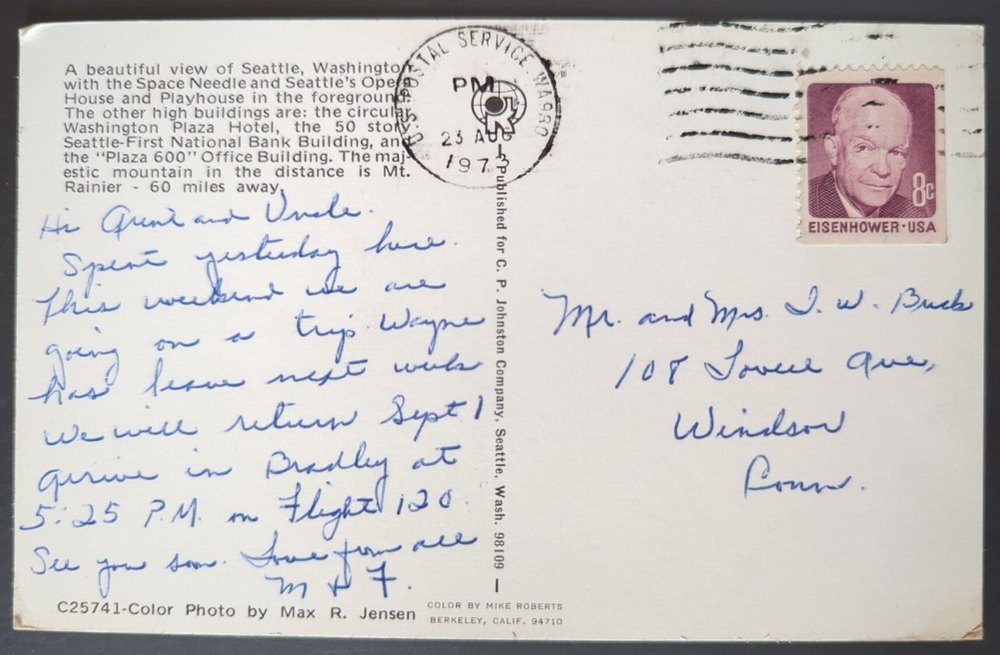 A beautiful view of Seattle, Washington
with the Space Needle and Seattle's Opera
House and Playhouse in the foreground.
The other high buildings are: the circular
Washington Plaza Hotel, the 50 story
Seattle-First National Bank Building, and
the "Plaza 600" Office Building. The maj-
estic mountain in the distance is Mt.
Rainier - 60 miles away.
U.S. POSTAL SERVICE, WA 980
PM
23 AUG
1973
8c
EISENHOWER · USA
Hi Aunt and Uncle.
Spent yesterday here.
This weekend we are
going on a trip. Wayne
has leave next week
We will return Sept 1
arrive in Bradley at
5:25 P.M. on Flight 120.
See you soon. Love from all
M & F.
Published for C. P. Johnston Company, Seattle, Wash. 98109
Mr. and Mrs. I. W. Buck
108 Ave,
Windsor
Conn.
C25741-Color Photo by Max R. Jensen
COLOR BY MIKE ROBERTS
BERKELEY, CALIF. 94710